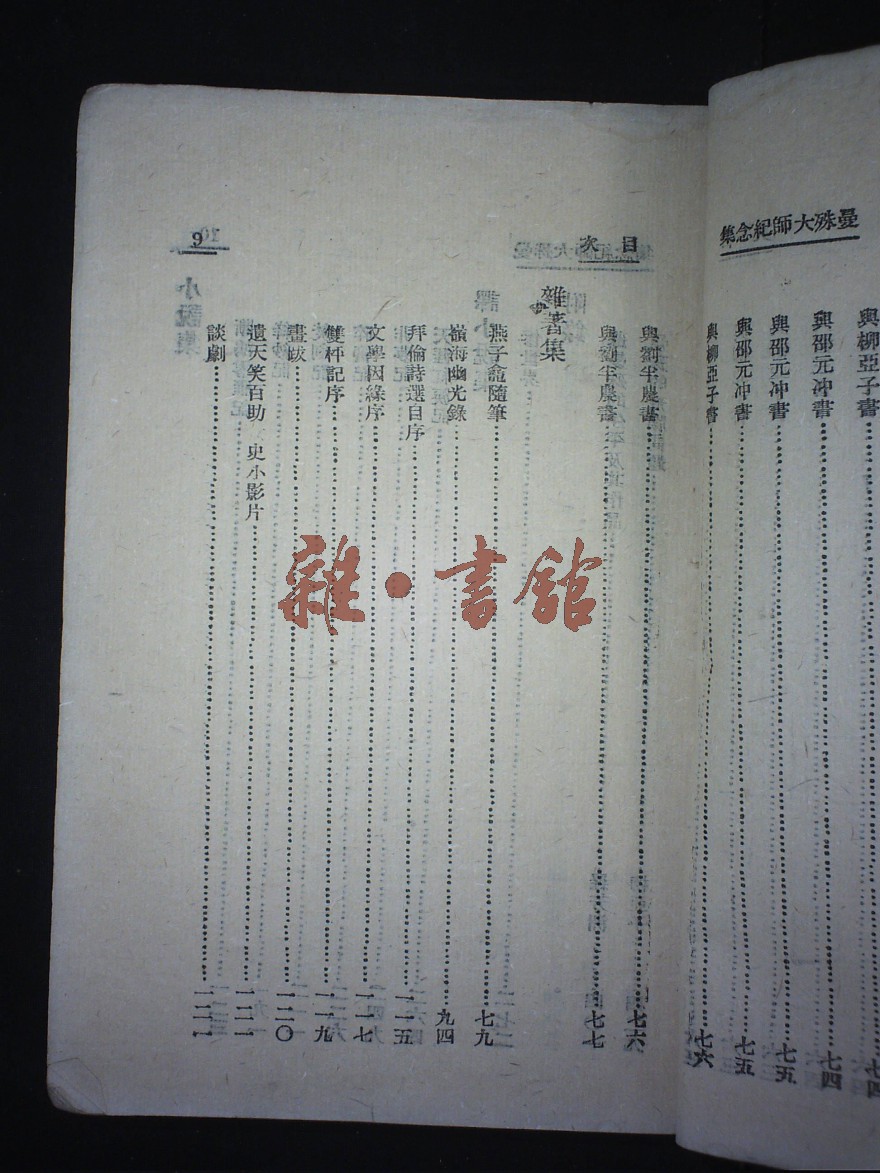 曼殊大師紀念集
與柳亞子書 七四
與邵元冲書 七四
與邵元冲書 七五
與邵元冲書 七五
與柳亞子書 七六
目次
9
與劉半農書 七六
與劉半農書 七七
雜著集
燕子龕隨筆 七九
嶺海幽光錄 九四
拜倫詩選自序 一一五
文學因緣序 一一七
雙枰記序 一一九
畫跋 一二〇
遺天笑百助 史小影片 一二一
談劇 一二一
雜·書館